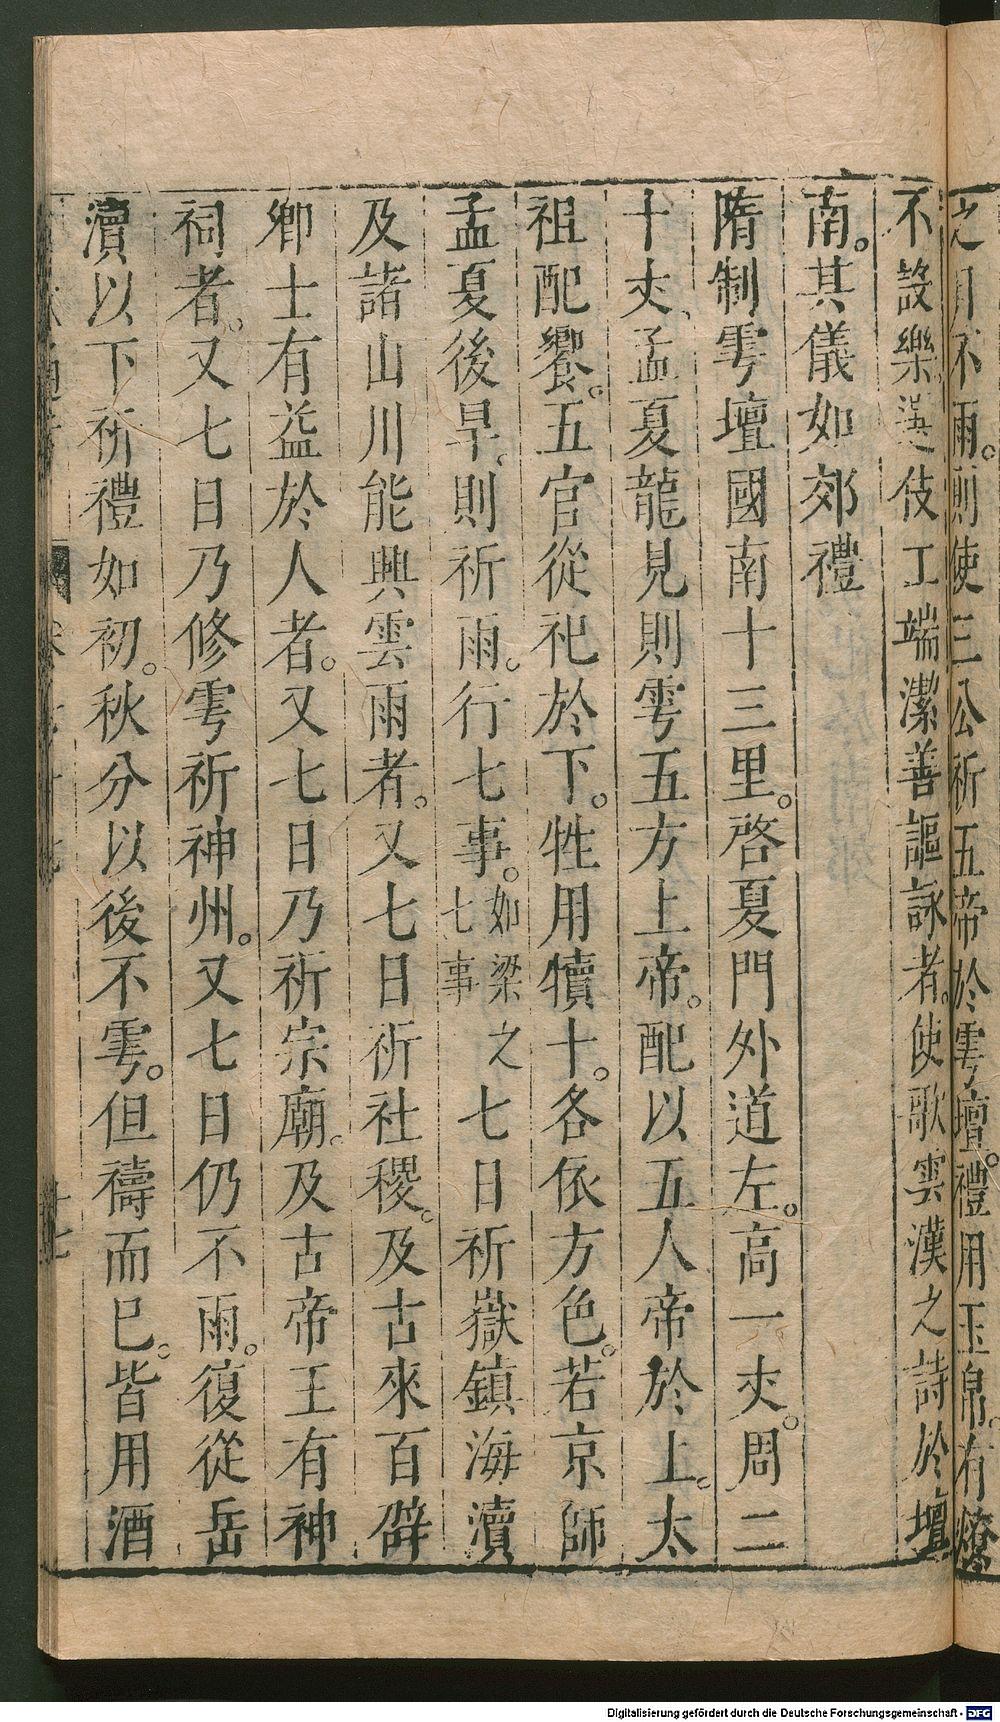 之月不雨則使三公祈五帝於雩壇禮用玉帛有燎
不設樂選伎工端潔善謳詠者使歌雲漢之詩於壇
南其儀如郊禮
隋制雩壇國南十三里啓夏門外道左高一丈周二
十丈孟夏龍見則雩五方上帝配以五人帝於上太
祖配饗五官從祀於下牲用犢十各依方色若京師
孟夏後旱則祈雨行七事如梁之七事七日祈嶽鎮海瀆
及諸山川能興雲雨者又七日祈社稷及古來百辟
卿士有益於人者又七日乃祈宗廟及古帝王有神
祠者又七日乃修雩祈神州又七日仍不雨復從岳
瀆以下祈禮如初秋分以後不雩但禱而已皆用酒
Digitalisierung gefördert durch die Deutsche Forschungsgemeinschaft - DFG